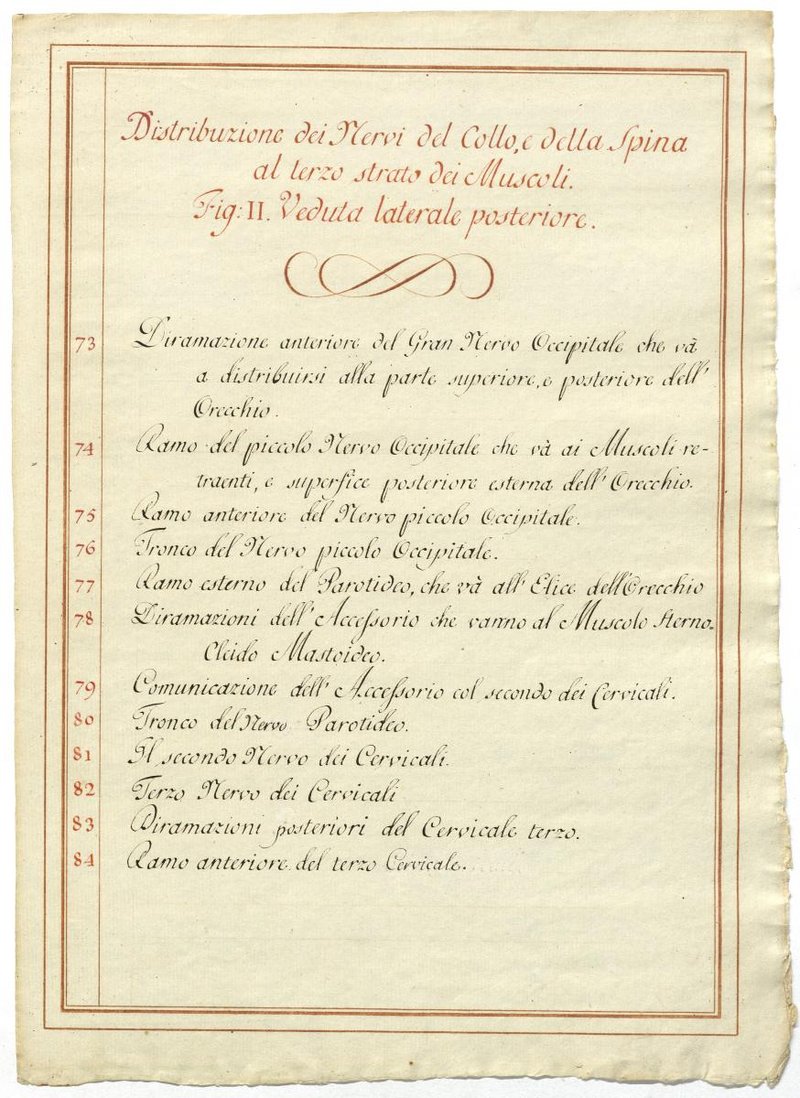 Distribuzione dei Nervi del Collo, e della Spina
al terzo strato dei Muscoli.
Fig: II. Veduta laterale posteriore.
73 Diramazione anteriore del Gran Nervo Occipitale che và
a distribuirsi alla parte superiore, e posteriore dell'
Orecchio.
74 Ramo del piccolo Nervo Occipitale che và ai Muscoli re-
traenti, e superfice posteriore esterna dell' Orecchio.
75 Ramo anteriore del Nervo piccolo Occipitale.
76 Tronco del Nervo piccolo Occipitale.
77 Ramo esterno del Parotideo, che và all' Elice dell' Orecchio
78 Diramazioni dell' Accessorio che vanno al Muscolo Sterno-
Cleido Mastoideo.
79 Comunicazione dell' Accessorio col secondo dei Cervicali.
80 Tronco del Nervo Parotideo.
81 Il secondo Nervo dei Cervicali.
82 Terzo Nervo dei Cervicali
83 Diramazioni posteriori del Cervicale terzo.
84 Ramo anteriore del terzo Cervicale.